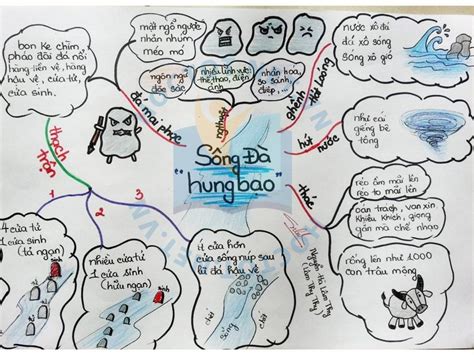 bon ke chìm,
pháo đài đá nổi
hàng tiền vệ, hàng
hậu vệ, cửa tử,
cửa sinh.
thạch
trận
mặt ngổ ngược
nhăn nhúm
méo mó
đá mai phục
ngôn ngữ
đặc sắc
nhiều lĩnh vực:
thể thao, điện
ảnh
nhân hóa,
so sánh
điệp, ...
nghệ thuật
ghềnh
Hát Loóng
nước xô đá
đá xô sóng
sóng xô gió
hút
nước
như cái
giếng bê
tông
Sông Đà
"hung bạo"
thác
réo ầm mãi lên
réo to mãi lên
oán trách, van xin
khiêu khích, giọng
gằn mà chế nhạo
rống lên như 1000
con trâu mộng
Nguyễn Hà Lâm Thy
(Lâm Thy Thy)
1
2
3
4 cửa tử
1 cửa sinh
(tả ngạn)
nhiều cửa tử
1 cửa sinh
(hữu ngạn)
ít cửa hơn
cửa sống núp sau
lũ đá hậu vệ
chết
sống
chết